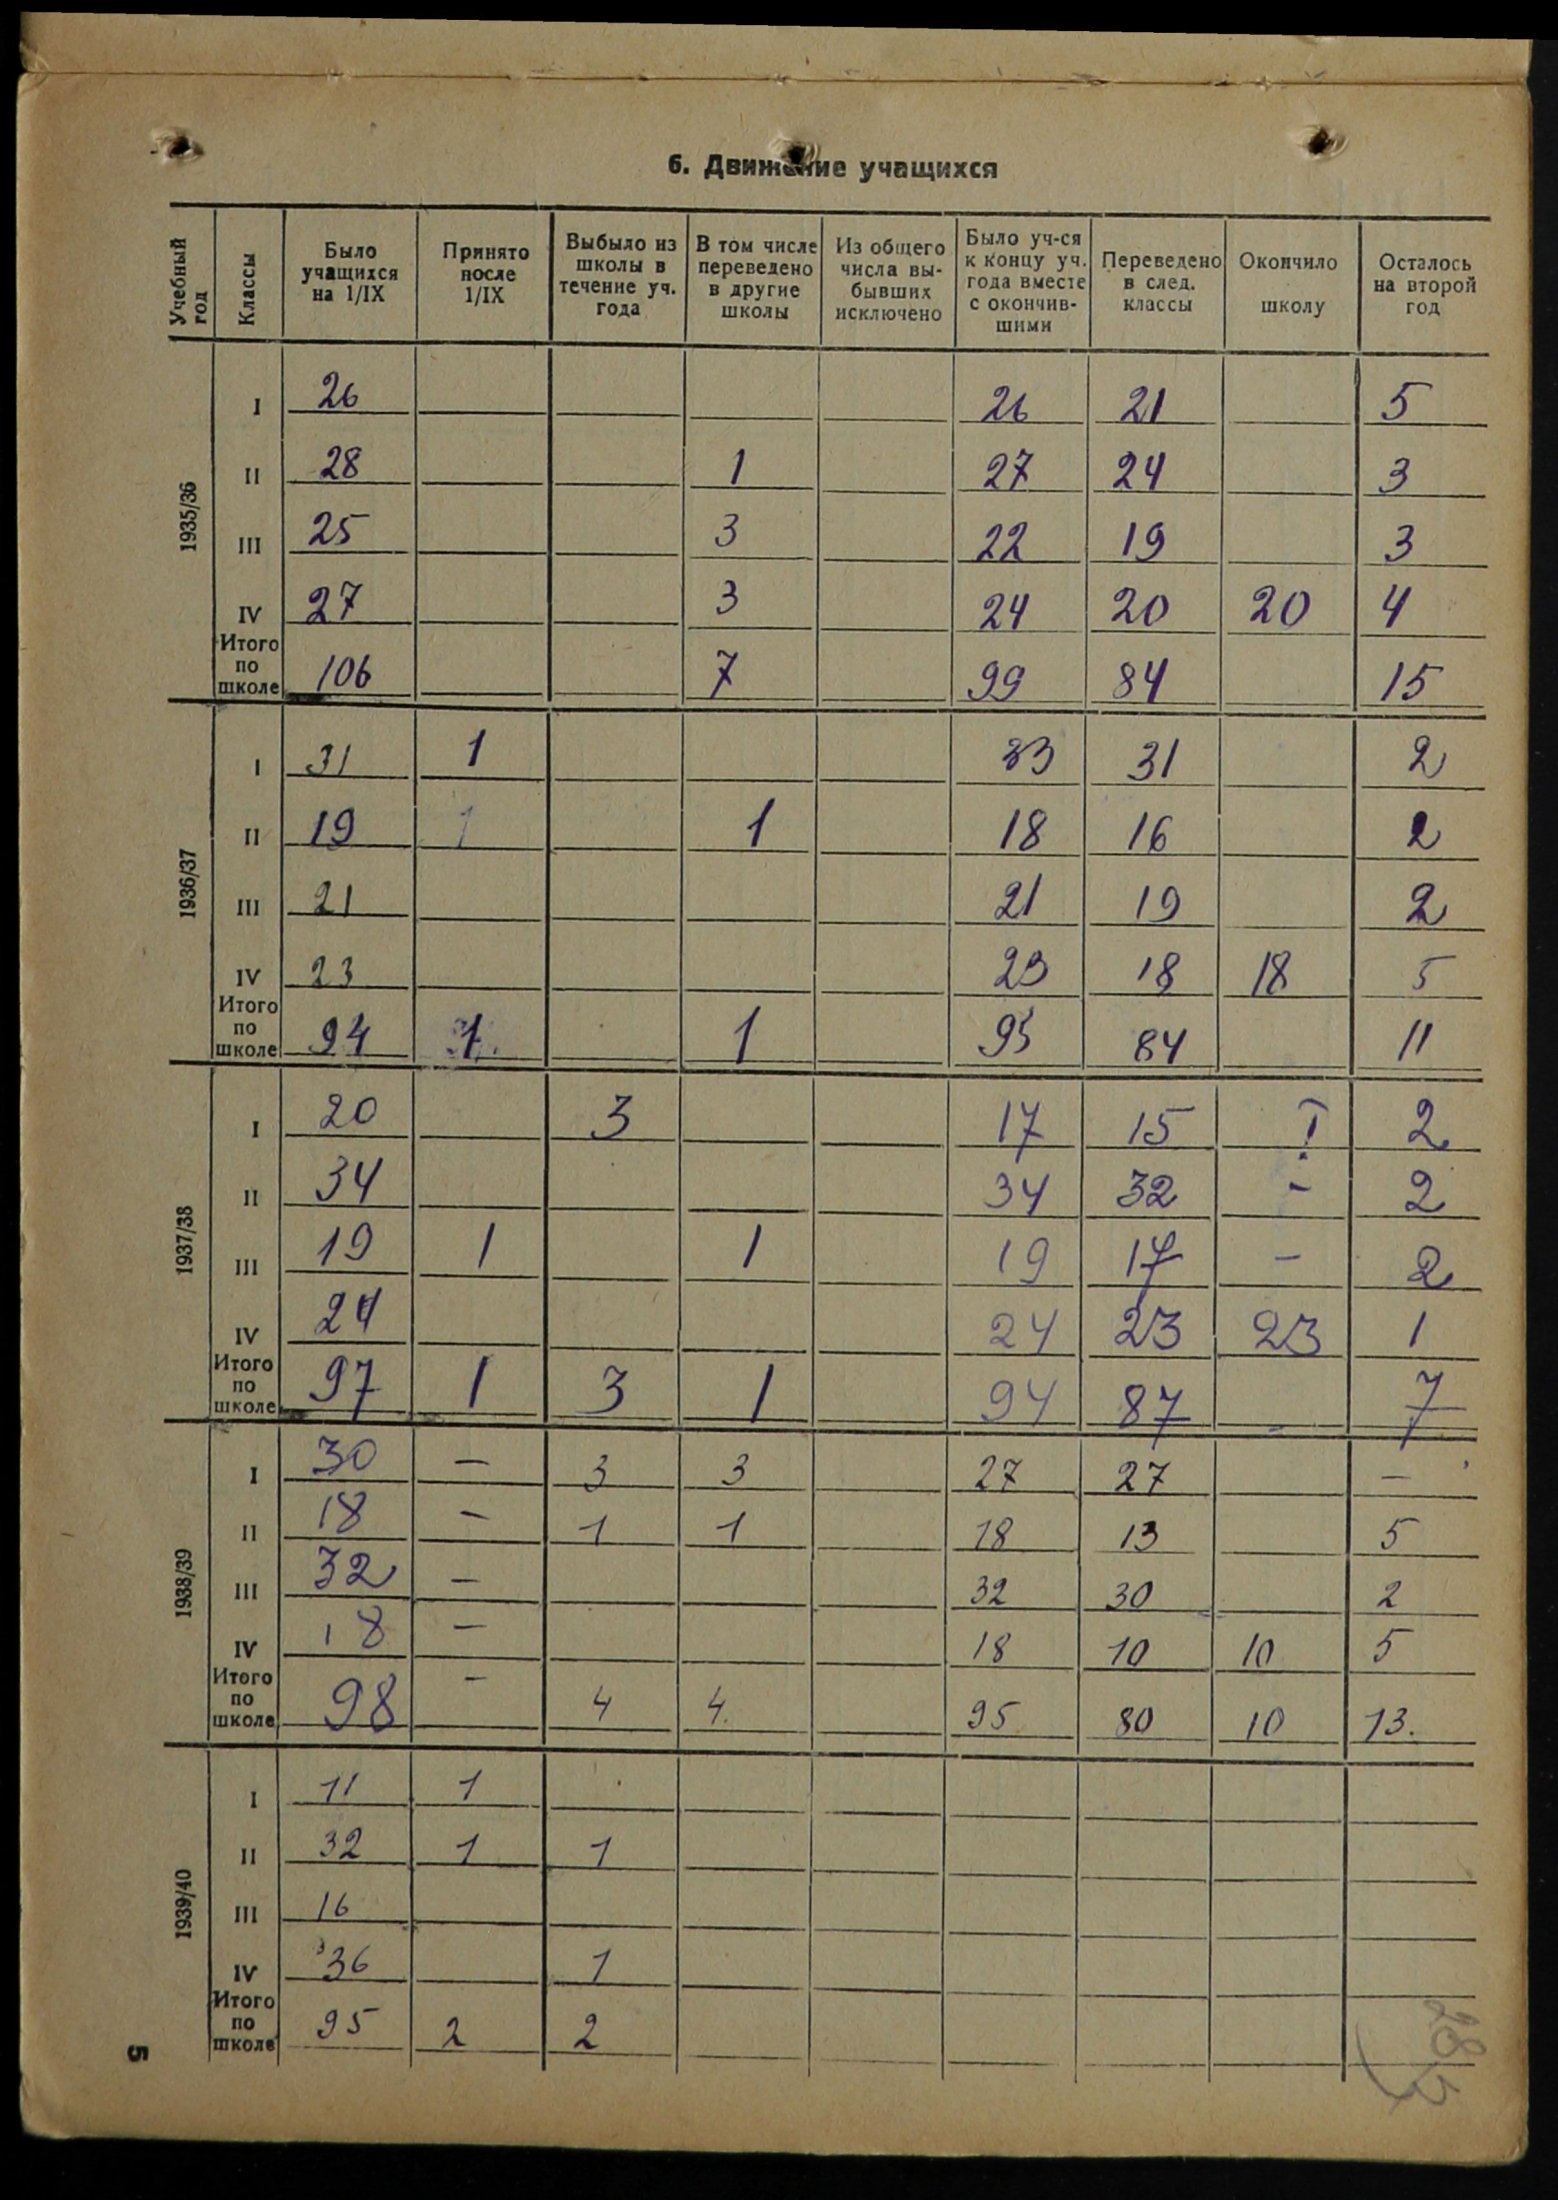 6. Движение учащихся
Учебный год | Классы | Было учащихся на 1/IX | Принято после 1/IX | Выбыло из школы в течение уч. года | В том числе переведено в другие школы | Из общего числа выбывших исключено | Было уч-ся к концу уч. года вместе с окончившими | Переведено в след. классы | Окончило школу | Осталось на второй год
1935/36
I 26 26 21 5
II 28 1 27 24 3
III 25 3 22 19 3
IV 27 3 24 20 20 4
Итого по школе 106 7 99 84 15
1936/37
I 31 1 33 31 2
II 19 1 1 18 16 2
III 21 21 19 2
IV 23 23 18 18 5
Итого по школе 94 1 1 95 84 11
1937/38
I 20 3 17 15 ! 2
II 34 34 32 - 2
III 19 1 1 19 17 - 2
IV 24 24 23 23 1
Итого по школе 97 1 3 1 94 87 - 7
1938/39
I 30 - 3 3 27 27 -
II 18 - 1 1 18 13 5
III 32 - 32 30 2
IV 18 - 18 10 10 5
Итого по школе 98 - 4 4. 95 80 10 13.
1939/40
I 11 1
II 32 1 1
III 16
IV 36 1
Итого по школе 95 2 2
5